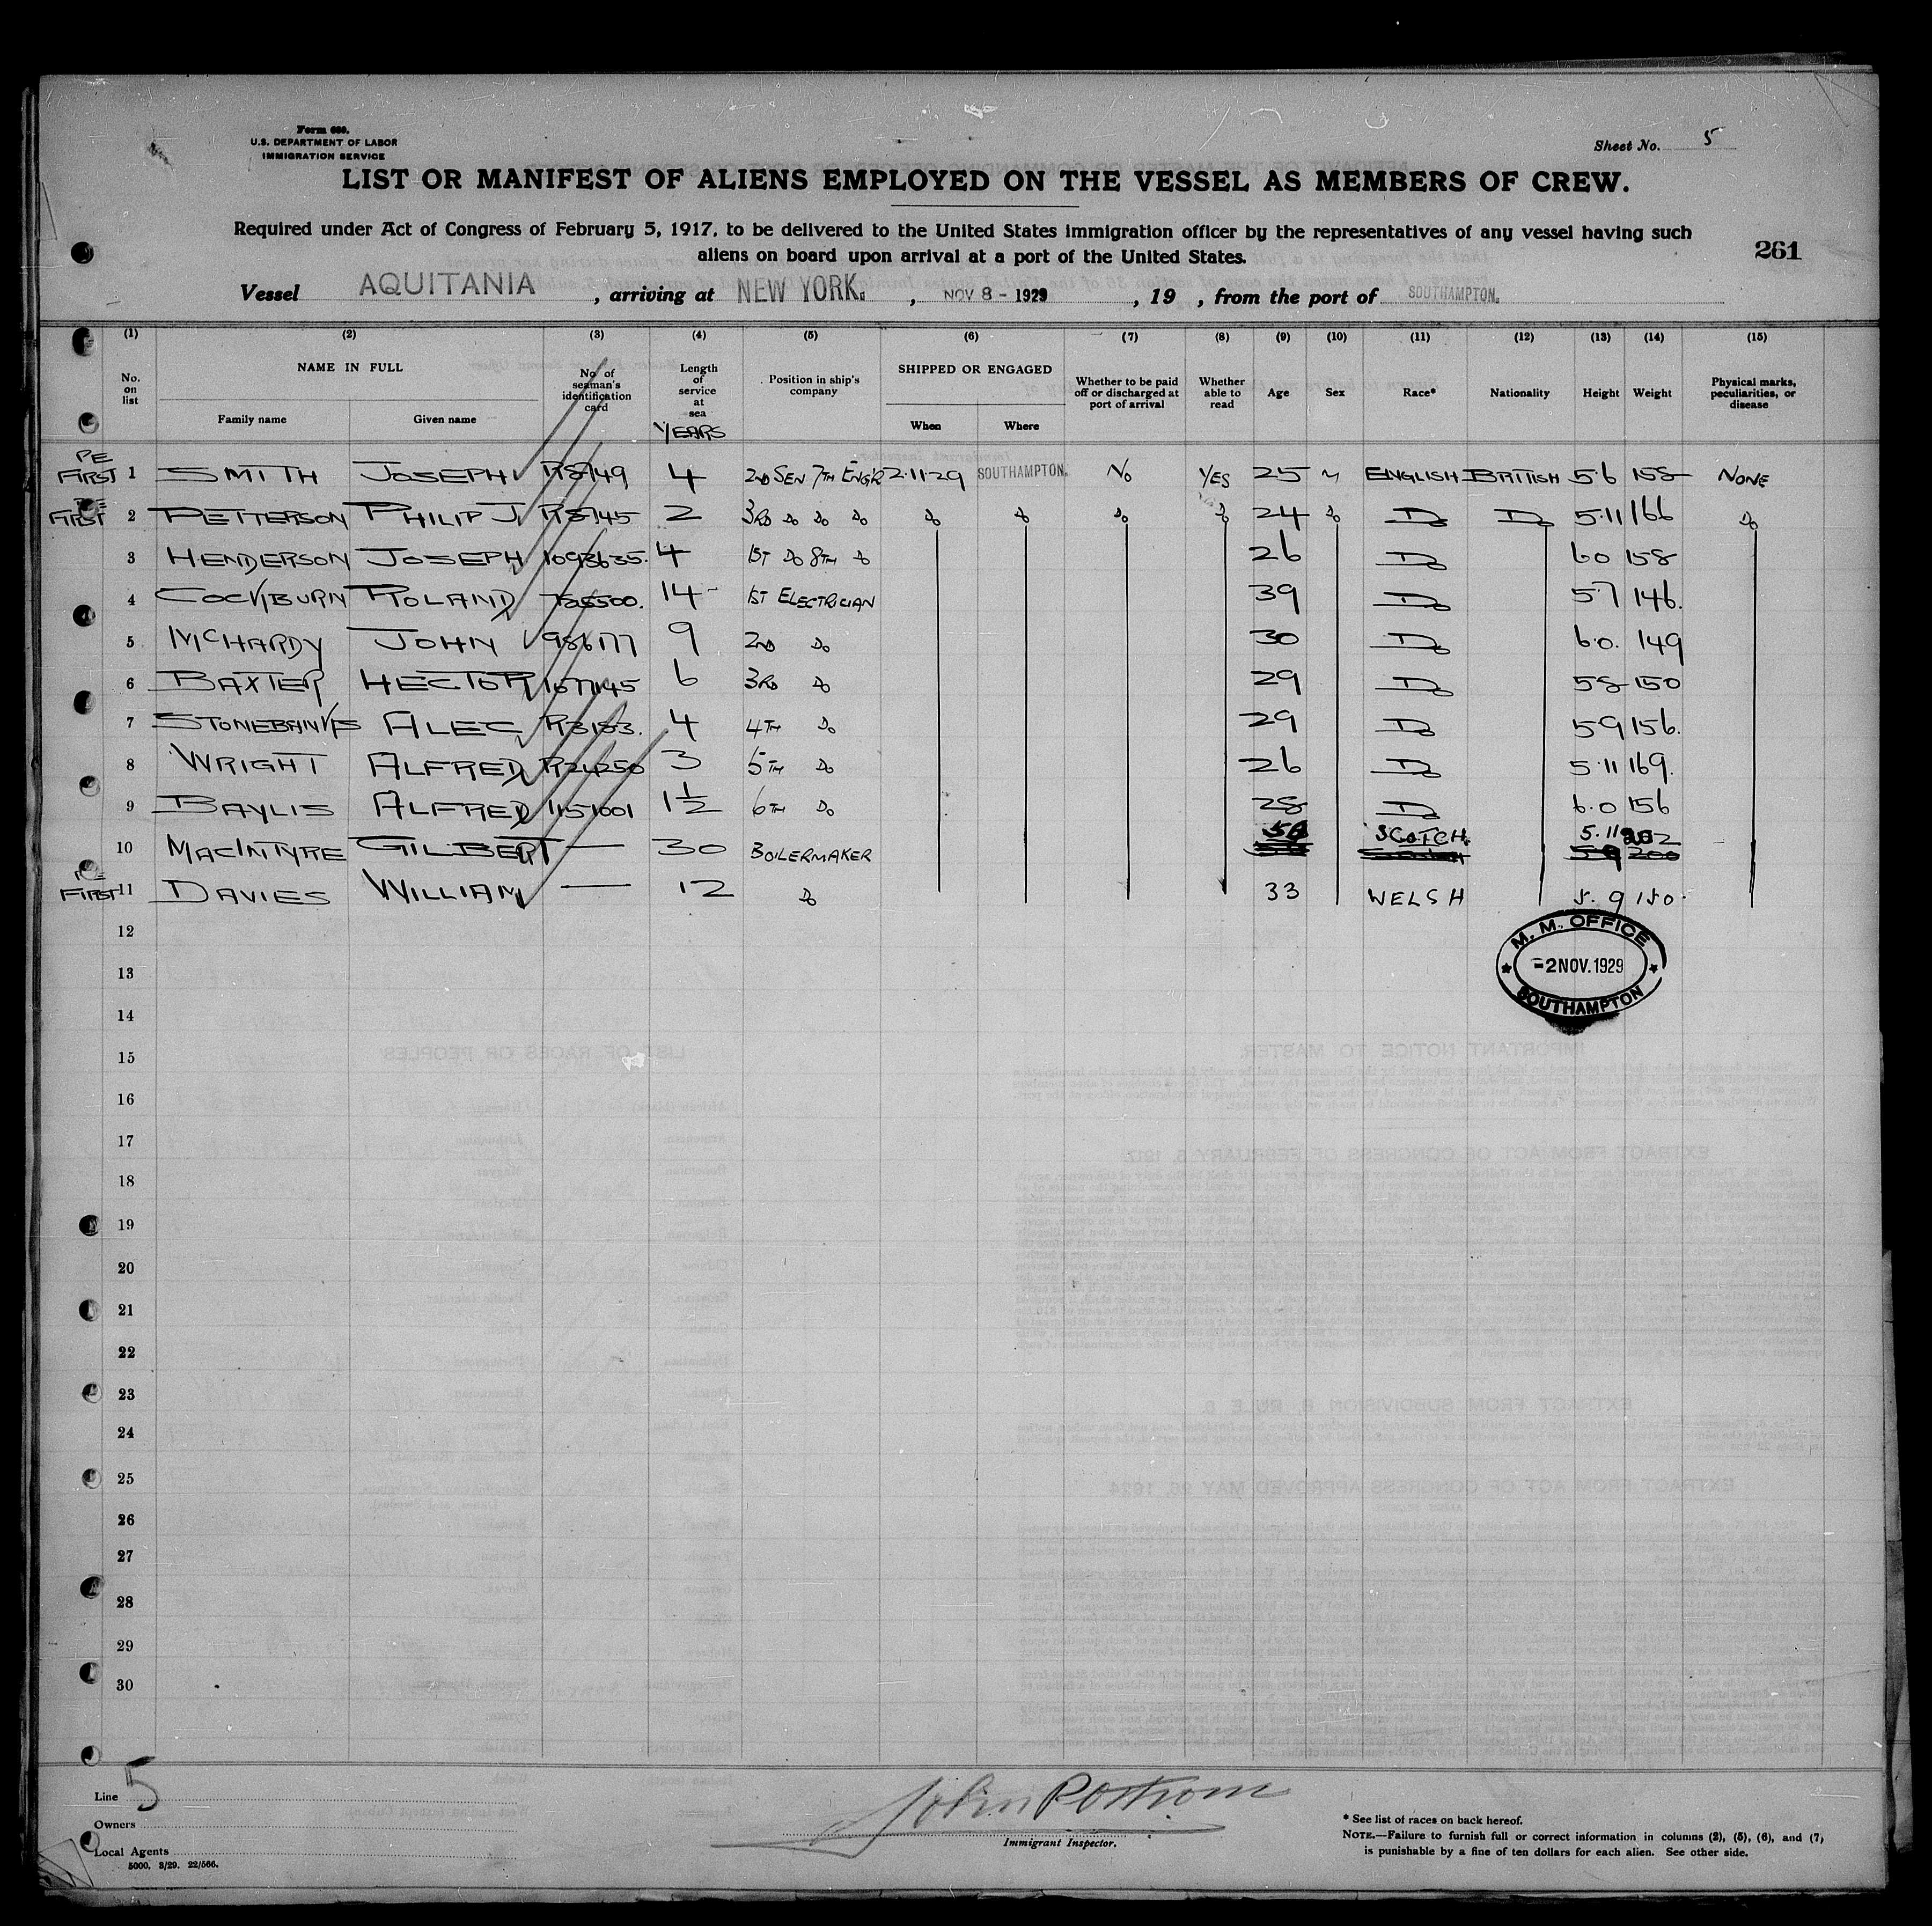 Form 680.
U.S. DEPARTMENT OF LABOR
IMMIGRATION SERVICE
Sheet No. 5
LIST OR MANIFEST OF ALIENS EMPLOYED ON THE VESSEL AS MEMBERS OF CREW.
Required under Act of Congress of February 5, 1917, to be delivered to the United States immigration officer by the representatives of any vessel having such
aliens on board upon arrival at a port of the United States.
261
Vessel AQUITANIA, arriving at NEW YORK., NOV 8 - 1929, 19 , from the port of SOUTHAMPTON.
(1) (2) (3) (4) (5) (6) (7) (8) (9) (10) (11) (12) (13) (14) (15)
No. on list NAME IN FULL Family name Given name No. of seaman's identification card Length of service at sea YEARS Position in ship's company SHIPPED OR ENGAGED When Where Whether to be paid off or discharged at port of arrival Whether able to read Age Sex Race* Nationality Height Weight Physical marks, peculiarities, or disease
PE
FIRST 1 SMITH JOSEPH R8749 4 2ND SEN 7TH ENGR 2.11.29 SOUTHAMPTON. NO YES 25 M ENGLISH BRITISH 5.6 158 NONE
FIRST 2 PETTERSON PHILIP J. R8745 2 3RD Do Do Do Do Do Do Do 24 Do Do Do 5.11 166 Do
3 HENDERSON JOSEPH 1093635. 4 1ST Do 8TH Do 26 Do 6.0 158
4 COCKBURN ROLAND 14 1ST ELECTRICIAN 39 Do 5.7 146.
5 McHARDY JOHN 986177 9 2ND Do 30 Do 6.0. 149
6 BAXTER HECTOR 1077145 6 3RD Do 29 Do 5.8 150
7 STONEBANKS ALEC R3183. 4 4TH Do 29 Do 5.9 156.
8 WRIGHT ALFRED R24250 3 5TH Do 26 Do 5.11 169.
9 BAYLIS ALFRED 1151001 1½ 6TH Do 28 Do 6.0 156
10 MACINTYRE GILBERT — 30 BOILERMAKER SCOTCH 5.11 202
FIRST 11 DAVIES WILLIAM — 12 Do 33 WELSH 5.9 150.
12
M. M. OFFICE
-2 NOV. 1929
SOUTHAMPTON
13
14
15
16
17
18
19
20
21
22
23
24
25
26
27
28
29
30
Line 5
Owners
Local Agents
5000. 3/29. 22/566.
Immigrant Inspector.
* See list of races on back hereof.
NOTE.—Failure to furnish full or correct information in columns (2), (5), (6), and (7)
is punishable by a fine of ten dollars for each alien. See other side.